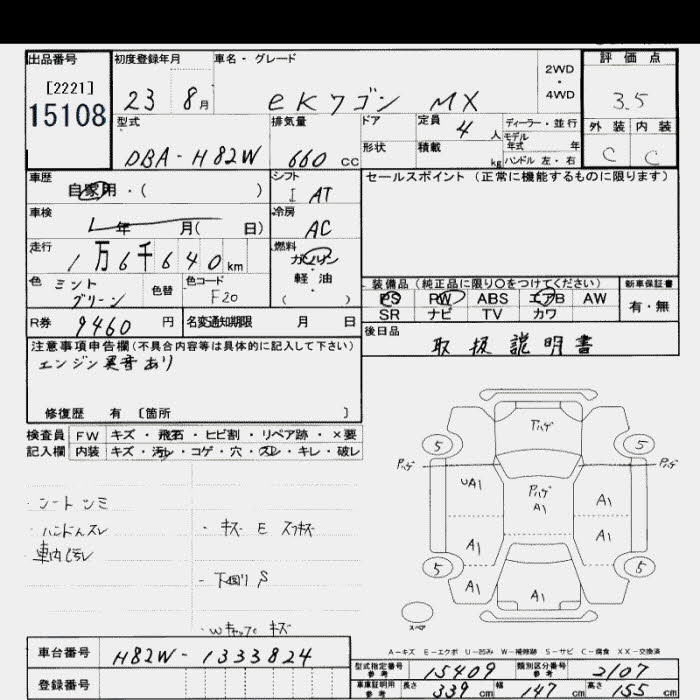 出品番号 初度登録年月 車名・グレード 評価点
[2221]
15108
23 8月 eKワゴン MX 2WD・4WD 3.5
型式 排気量 ドア 定員 4人 ディーラー・並行 外装 内装
形状 積載 kg モデル年式 年 C C
DBA-H82W 660 cc ハンドル 左・右
車歴 自家用・( ) シフト I AT セールスポイント(正常に機能するものに限ります)
車検 年 月( 日) 冷房 AC
走行 1万6千640km 燃料 ガソリン・軽油( )
色 ミントグリーン 色替 色コード F20
装備品(純正品に限り○をつけてください) 新車保証書
PS PW ABS エアB AW 有・無
SR ナビ TV カワ
R券 9460円 名変通知期限 月 日
後日品 取扱説明書
注意事項申告欄(不具合内容等は具体的に記入して下さい)
エンジン異音あり
修復歴 有 [箇所 ]
検査員 FW キズ・飛石・ヒビ割・リペア跡・×要
記入欄 内装 キズ・汚レ・コゲ・穴・スレ・キレ・破レ
・シートシミ
・ハンドルスレ
車内汚レ
・キズ E
・下回り S
・Wキャップ キズ
Pハゲ
5 5
Pハゲ Pハゲ
UA1 Pハゲ A1 A1
A1 A1
5 5
A1 A1
スペア
A-キズ E-エクボ U-凹み W-補修跡 S-サビ C-腐食 XX-交換済
車台番号 H82W-1333824
型式指定番号 参考 15409 類別区分番号 参考 2107
登録番号
車庫証明用 参考 長さ 339cm 幅 147cm 高さ 155cm